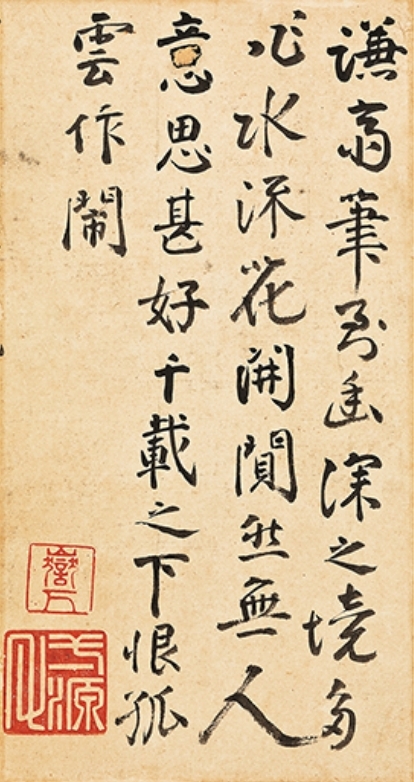 謙齋筆到幽深之境多
必水流花開閴然無人
意思甚好千載之下恨孤
雲作鬧